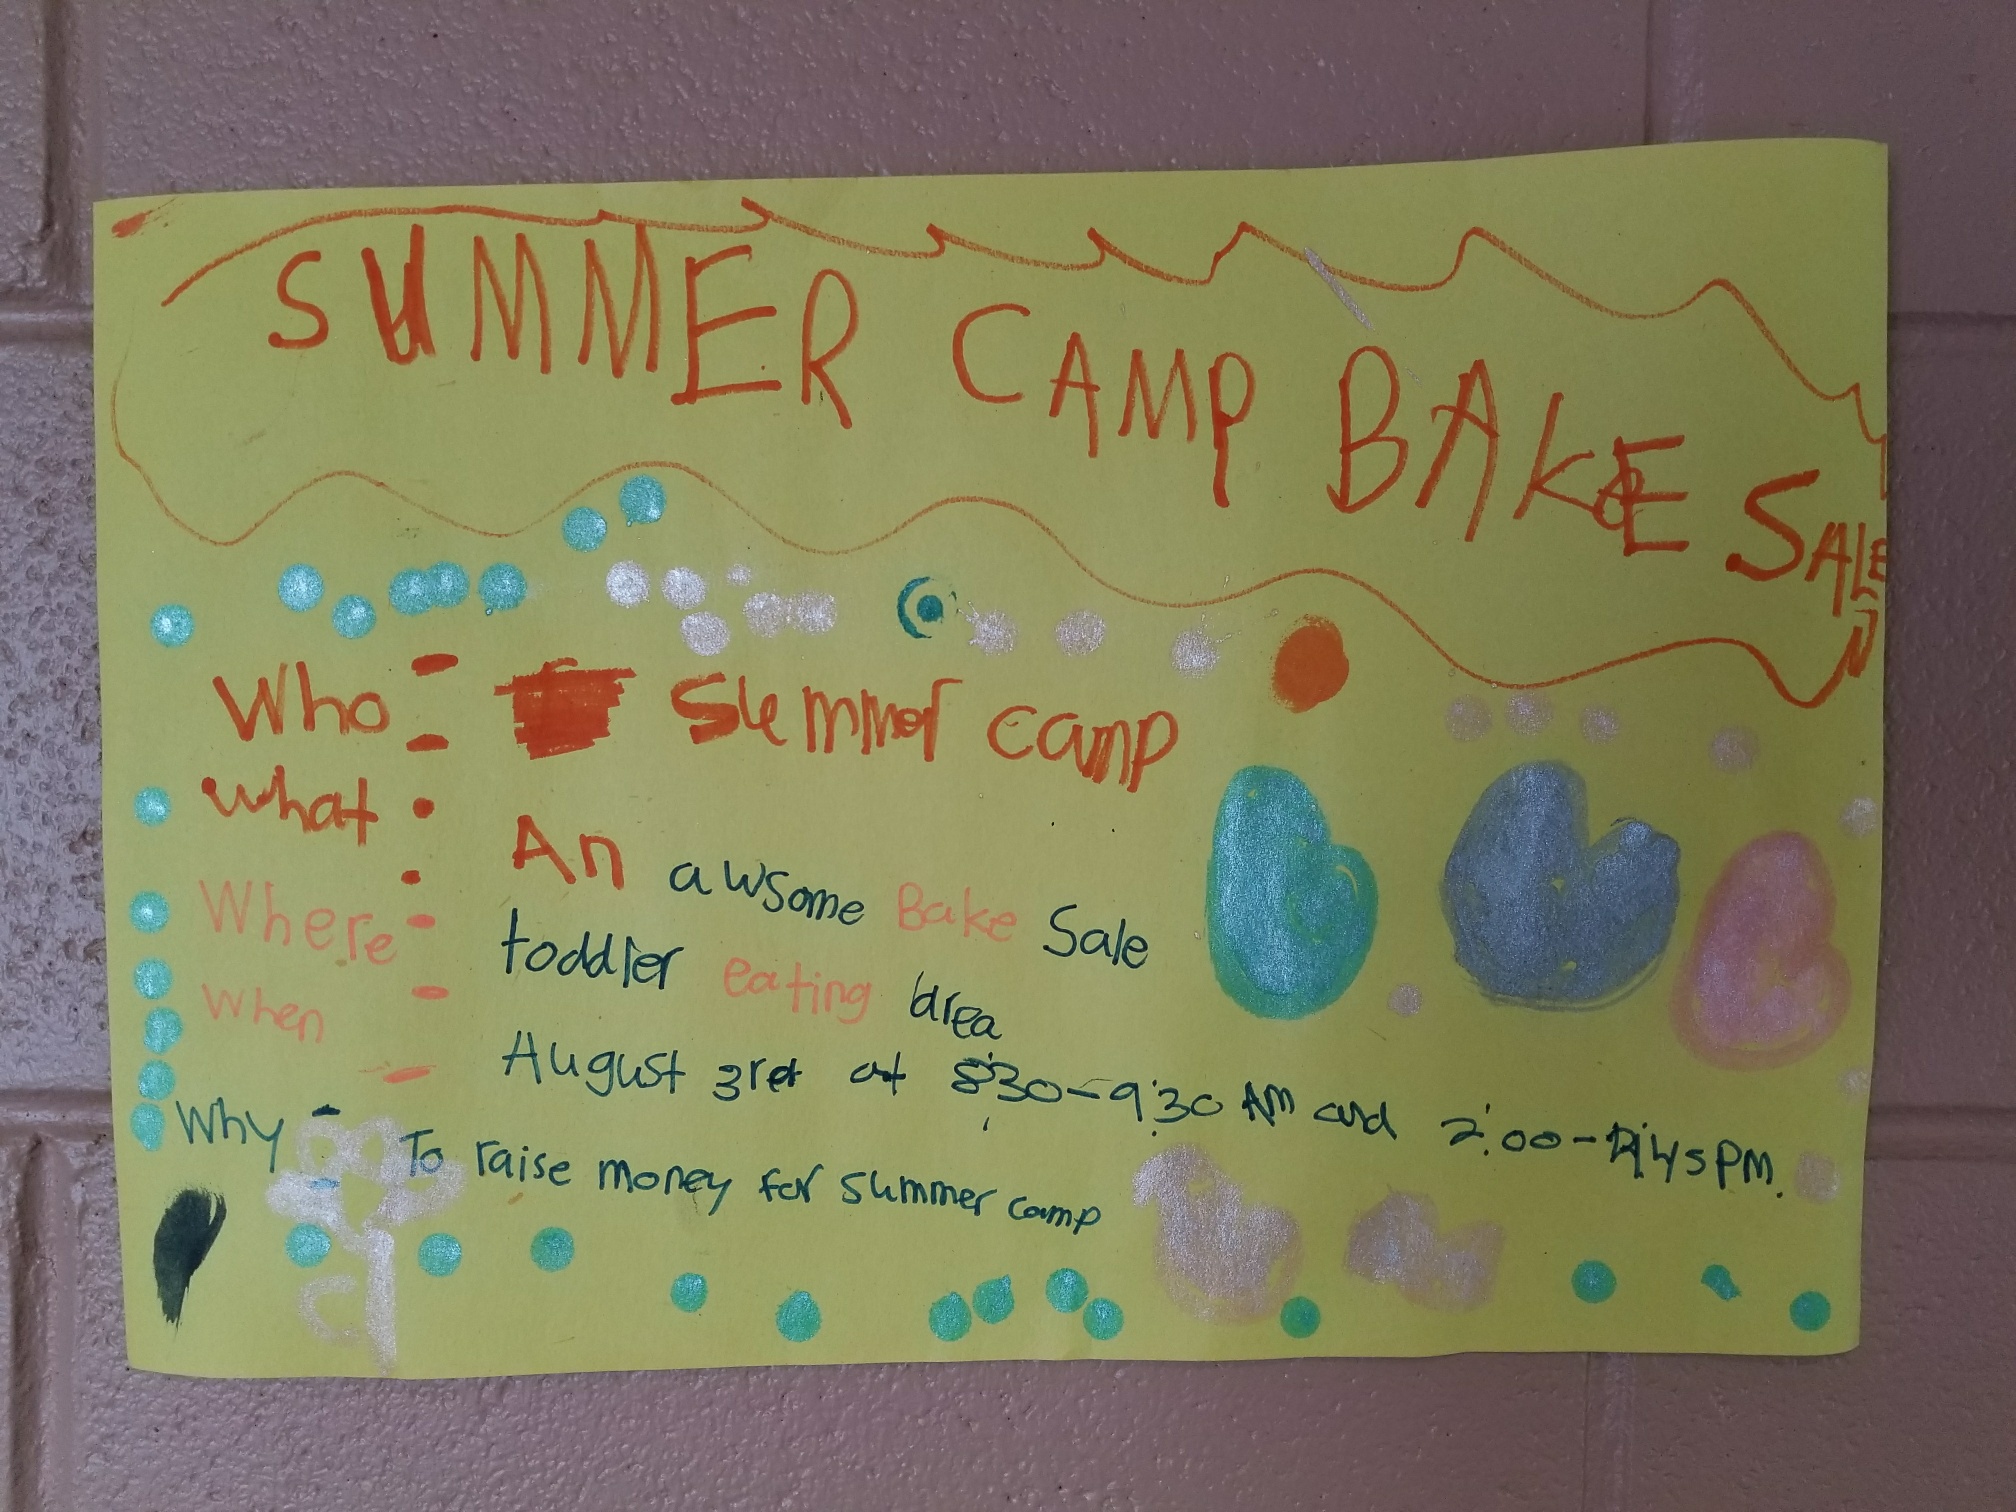 SUMMER CAMP BAKE SALE
Who : Summer camp
what : An awsome Bake Sale
Where : toddler eating area
when : August 3rd at 8:30-9:30 AM and 2:00- PM.
Why : To raise money for summer camp